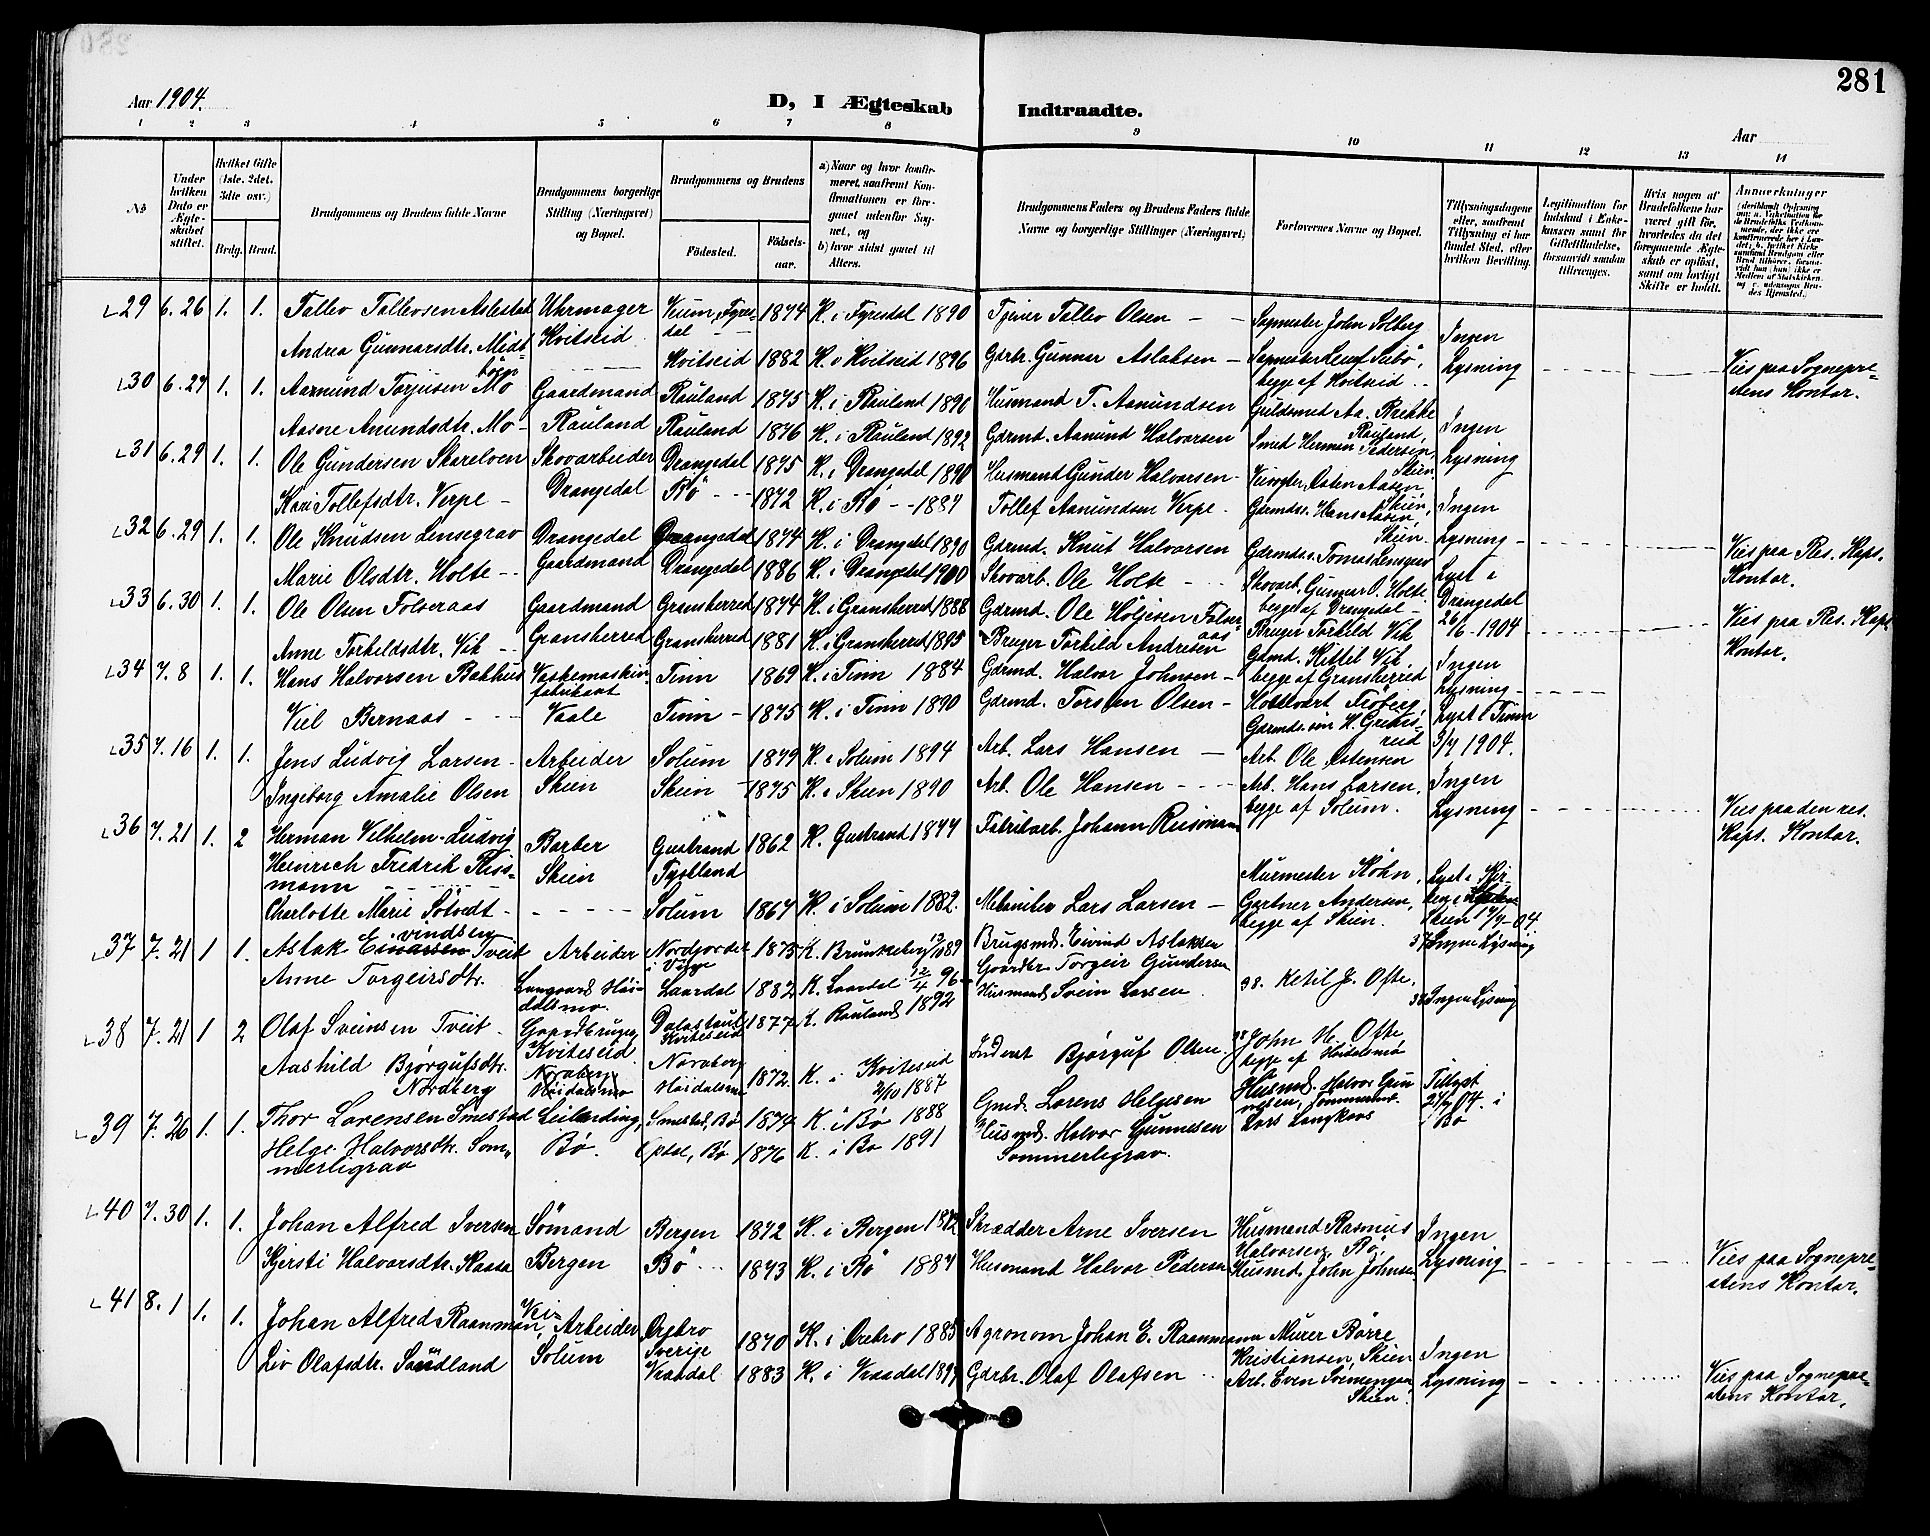 281
Aar 1904.
D, I Ægteskab Indtraadte.
Aar
1 2 3 4 5 6 7 8 9 10 11 12 13 14
No
Under hvilken Dato er Ægteskabet stiftet.
Hvilket Gifte (1ste, 2det, 3die osv.)
Brdg. Brud.
Brudgommens og Brudens fulde Navne
Brudgommens borgerlige Stilling (Næringsvei) og Bopæl.
Brudgommens og Brudens
Fødested.
Fødselsaar.
a) Naar og hvor konfirmeret, saafremt Konfirmationen er foregaaet udenfor Sognet, og
b) hvor sidst gaaet til Alters.
Brudgommens Faders og Brudens Faders fulde Navne og borgerlige Stillinger (Næringsvei)
Forlovernes Navne og Bopæl.
Tillysningsdagene eller, saafremt Tillysning ei har fundet Sted, efter hvilken Bevilling.
Legitimation for Indskud i Enkekassen samt for Giftetilladelse, forsaavidt saadan tiltrænges.
Hvis nogen af Brudefolkene har været gift før, hvorledes da det foregaaende Ægteskab er opløst, samt om lovligt Skifte er holdt.
Anmærkninger
29 6.26 1. 1. Tallev Tallevsen Aslestad Uhrmager Veum, Fyresdal 1874 K. i Fyresdal 1890 Tjener Tallev Olsen Sagmester John Solberg Ingen
Andrea Gunnarsdtr. Midtbøen Kvitseid Kvitseid 1882 K. i Kvitseid 1896 Gdrbr. Gunnar Aslaksen begge af Kvitseid Lysning Vies paa Sogneprestens Kontor.
30 6.27 1. 1. Aamund Torjusen Mo Gaardmand Rauland 1875 K. i Rauland 1890 Husmand T. Aamundsen Guldsmed Aa. Brekke Rauland, Ingen
Aasne Amundsdtr. Mo Rauland Rauland 1876 K. i Rauland 1892 Gdrmd. Aamund Halvorsen Smed Herman Pedersen, Skien Lysning
31 6.29 1. 1. Ole Gundersen Skarelven Skovarbeider Drangedal 1875 K. i Drangedal 1890 Husmand Gunder Halvorsen Aasen, Skien,
Kari Tollefsdtr. Verpe Drangedal Bø 1872 K. i Bø 1887 Tollef Aamundsen Verpe Gdrmds. Hans Aasen Skien. Ingen Lysning Vies paa Res. Kaps. Kontor.
32 6.29 1. 1. Ole Knudsen Lensegrav Drangedal Drangedal 1874 K. i Drangedal 1890 Gdrmd. Knut Halvorsen Gdrmds. Tomas Lensgrav
Marie Olsdtr. Holte Gaardmand Drangedal 1886 K. i Drangedal 1900 Skovarb. Ole Holte Skovarb. Gunnar O. Holte begge af Drangedal Lyst i Drangedal 26/6-1904
33 6.30 1. 1. Ole Olsen Folseraas Gaardmand Gransherred 1874 K. i Gransherred 1888 Gdrmd. Ole Höljesen Folseraas Bruger Torkild Vik Vies paa Res. Kaps. Kontor.
Anne Torkeldsdtr. Vik Gransherred Gransherred 1881 K. i Gransherred 1895 Bruger Torkild Andresen Gdmd. Kittil Vik. begge af Gransherred Ingen Lysning
34 7.8 1. 1. Hans Halvorsen Bakhus Vaskemaskinfabrikant Tinn 1869 K. i Tinn 1884 Gdrmd. Halvor Johnsen
Viel Bernaas Vaale Tinn 1875 K. i Tinn 1890 Gdrmd. Torsten Olsen Lyst i Tinn 3/7 1904.
35 7.16 1. 1. Jens Ludvig Larsen Arbeider Solum 1879 K. i Solum 1894 Arb. Lars Hansen Arb. Ole Ostensen
Ingeborg Amalie Olsen Skien Skien 1875 K. i Skien 1890 Arb. Ole Hansen Arb. Hans Larsen, begge af Solum. Ingen Lysning Vies paa den res. Kaps. Kontor.
36 7.21 1. 2 Herman Vilhelm Ludvig Barber Gustrand 1862 K. Gustrand 1877 Fabrikarb. Johann
Heinrich Fredrik Rissmann Skien Tyskland Murmester Köhn, Lyst i
Charlotte Marie Sötvedt Solum 1867 K. i Solum 1882. Mekaniker Lars Larsen Gartner Andersen, begge af Skien. Skien 17/7-04.
37 7.21 1 1 Aslak Eivindsen Tveit Arbeider Nordfjorder i Vinje 1875 K. Brunkeberg 1889 Brugsmd. Eivind Aslaksen 37 Ingen Lysning
Anne Torgeirsdtr. Høidalsmo Laardal 1882 K. Laardal 96 Gaardbr Torgeir Gundersen 38. Ketil J. Ofte,
38 7.21 1 2 Olaf Sveinsen Tveit Gaardbruger Kviteseid Kviteseid 1877 K. Rauland 1892 Husmand Svein Larsen John H. Ofte begge af Høidalsmo 38 Ingen Lysning
Aashild Bjørgufsdtr. Nordberg Norberg Høidalsmo Norberg Høidalsmo 1872. K. i Kviteseid 2/10 1887 Inderst Bjørguf Olsen
39 7.26 1. 1. Thor Lorensen Smestad Leilending, Smestad, Bø 1874 K. i Bø 1888 Gmd. Lorens Helgesen Husmd. Halvor Tillyst 24/7 04. i Bø
Helge Halvorsdtr. Sommerligrav Bø. Bø 1876 K. i Bø 1891 Husmd. Halvor Gunnesen Sommerligrav. Lars Langkaas
40 7.30 1. 1. Johan Alfred Iversen Sömand Bergen 1872 K. i Bergen Skrædder Arne Iversen Husmand Rasmus Halvorsen, Bø, Ingen
Kjersti Halvorsdtr. Kaasa Bergen Bø 1873 K. i Bø 1887 Husmand Halvor Pedersen Husmd. John Johnsen Lysning Vies paa Sogneprestens Kontor.
41 8.1 1. 1. Johan Alfred Raanman, Vei-Arbeider Örebro Sverige 1870 K. i Örebro 1885 Agronom Johan E. Raanmann Murer Börre Kristiansen, Skien Ingen
Liv Olafsdtr. Sundland Solum Vraadal 1883 K. i Vraadal Gdrbr. Olaf Olafsen Arb. Even Skien. Lysning Vies paa Sogneprestens Kontor.